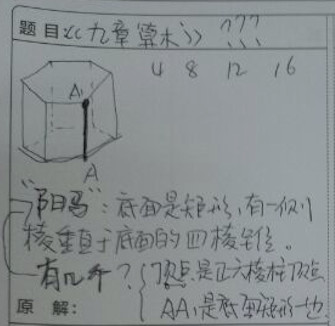 题目:《九章算术》 ???
4 8 12 16
A₁
A
"阳马": 底面是矩形,有一侧
棱垂直于底面的四棱锥。
有几个? { 顶点是正六棱柱顶点
AA₁是底面矩形一边
原 解: